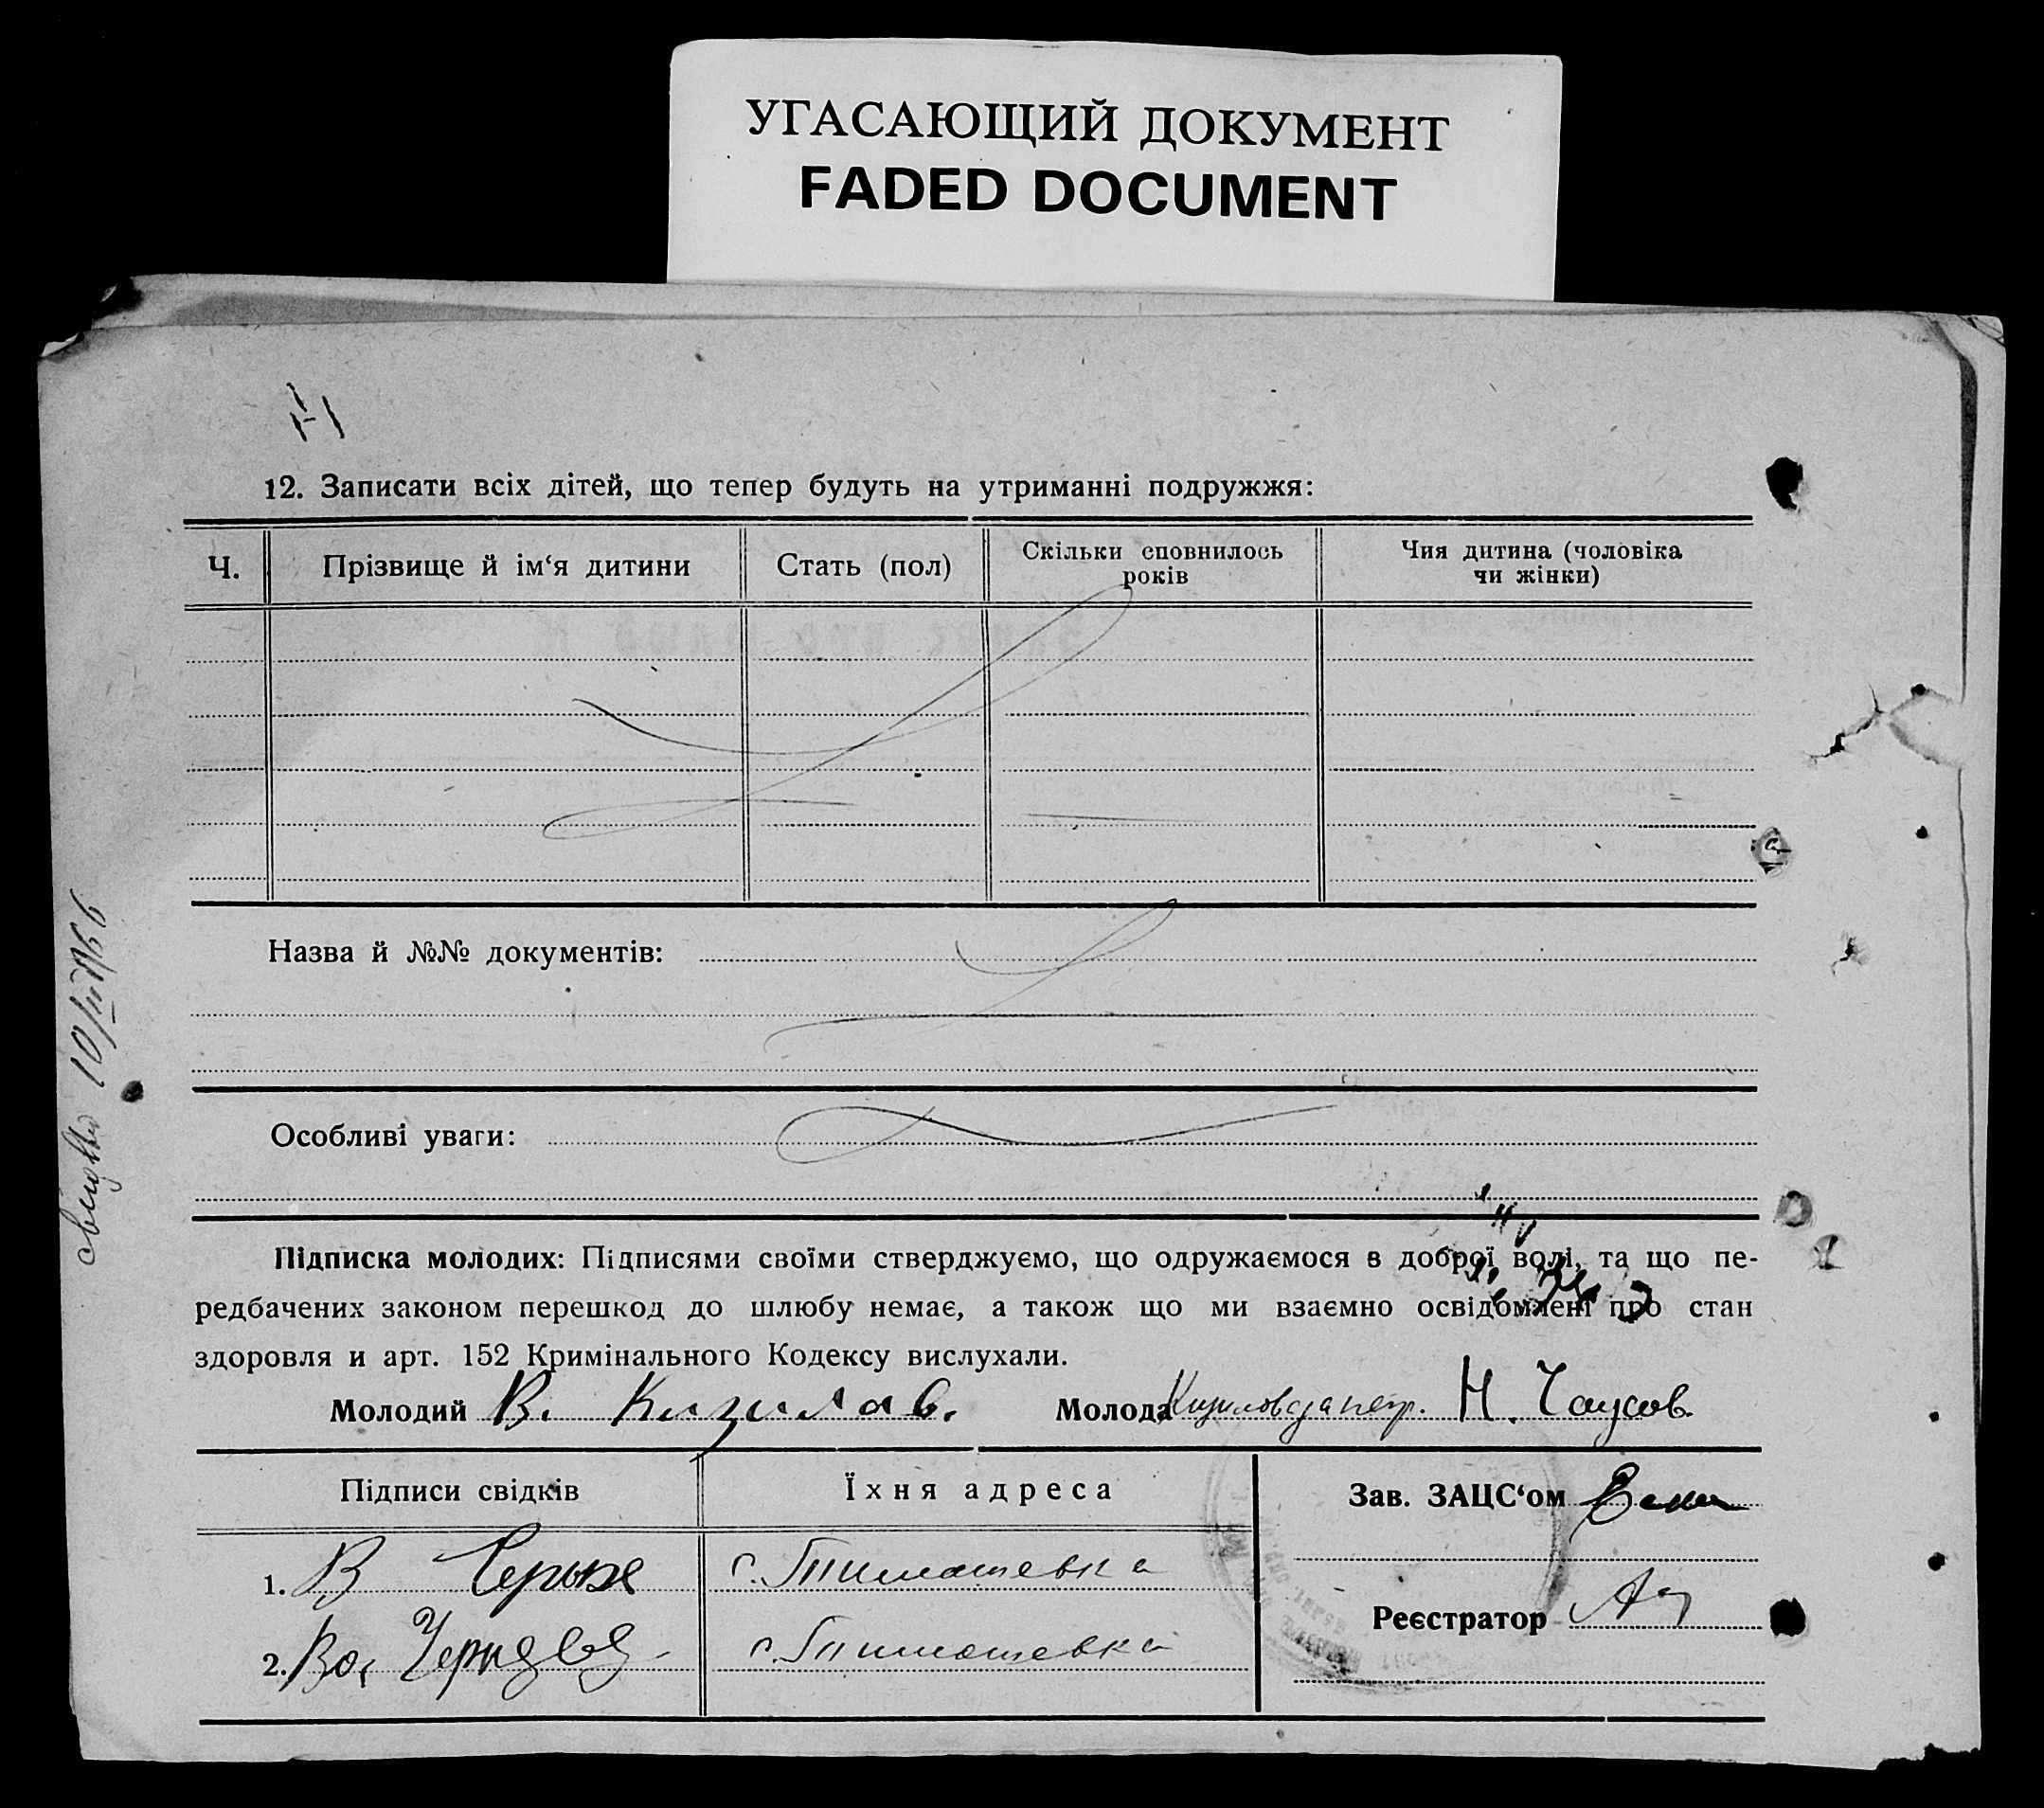 УГАСАЮЩИЙ ДОКУМЕНТ
FADED DOCUMENT
12. Записати всіх дітей, що тепер будуть на утриманні подружжя:
Ч.
Прізвище й ім‘я дитини
Стать (пол)
Скільки сповнилось
років
Чия дитина (чоловіка
чи жінки)
Назва й №№ документів:
Особливі уваги:
Підписка молодих: Підписями своїми стверджуємо, що одружаємося в доброї волі, та що пе-
редбачених законом перешкод до шлюбу немає, а також що ми взаємно освідомлені про стан
здоровля и арт. 152 Кримінального Кодексу вислухали.
Молодий В. Кизилов.
Молода Н. Чаусов.
Підписи свідків
Їхня адреса
Зав. ЗАЦС‘ом
1. В
с. Тимошевка
Реєстратор
2.
с. Тимошевка